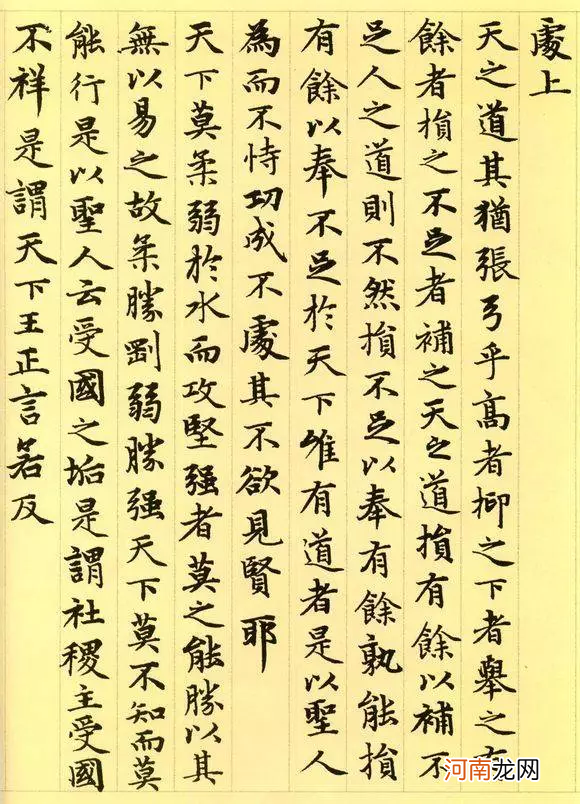 處上
天之道其猶張弓乎高者抑之下者舉之有
餘者損之不足者補之天之道損有餘以補不
足人之道則不然損不足以奉有餘孰能損
有餘以奉不足於天下唯有道者是以聖人
為而不恃功成不處其不欲見賢耶
天下莫柔弱於水而攻堅强者莫之能勝以其
無以易之故柔勝剛弱勝强天下莫不知而莫
能行是以聖人云受國之垢是謂社稷主受國
不祥是謂天下王正言若反
河南龙网